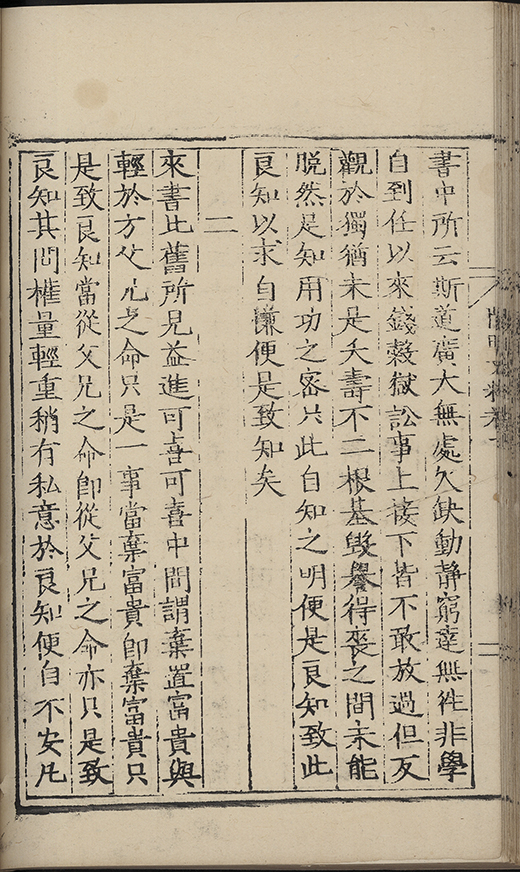 書中所云斯道廣大無處欠缺動靜窮達無往非學
自到任以來錢穀獄訟事上接下皆不敢放過但反
觀於獨猶未是夭壽不二根基毀譽得喪之間未能
脫然足知用功之密只此自知之明便是良知致此
良知以求自慊便是致知矣
二
來書比舊所見益進可喜可喜中間謂棄置富貴與
輕於方父兄之命只是一事當棄富貴即棄富貴只
是致良知當從父兄之命即從父兄之命亦只是致
良知其間權量輕重稍有私意於良知便自不安凡